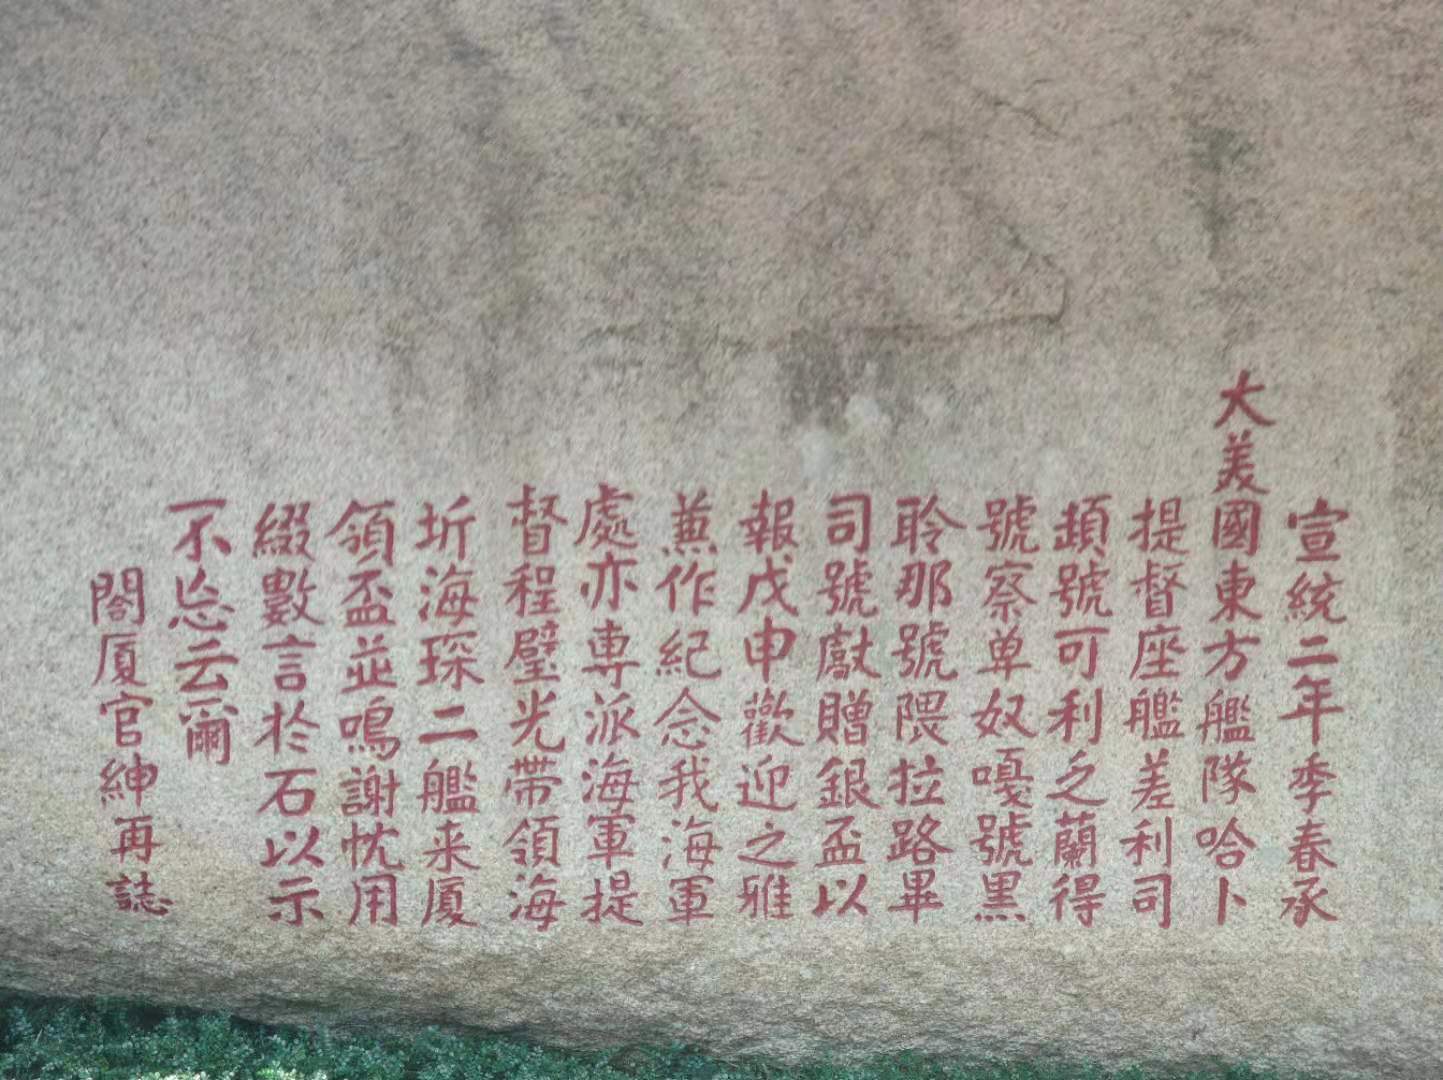 宣統二年季春承
大美國東方艦隊哈卜
提督座艦差利司
頓號可利乏蘭得
號察单奴嘎號黑
聆那號隈拉路畢
司號獻贈銀盃以
報戊申歡迎之雅
兼作紀念我海軍
處亦専派海軍提
督程璧光帶領海
圻海琛二艦来厦
領盃並鳴謝忱用
綴數言於石以示
不忘云爾
閤厦官紳再誌